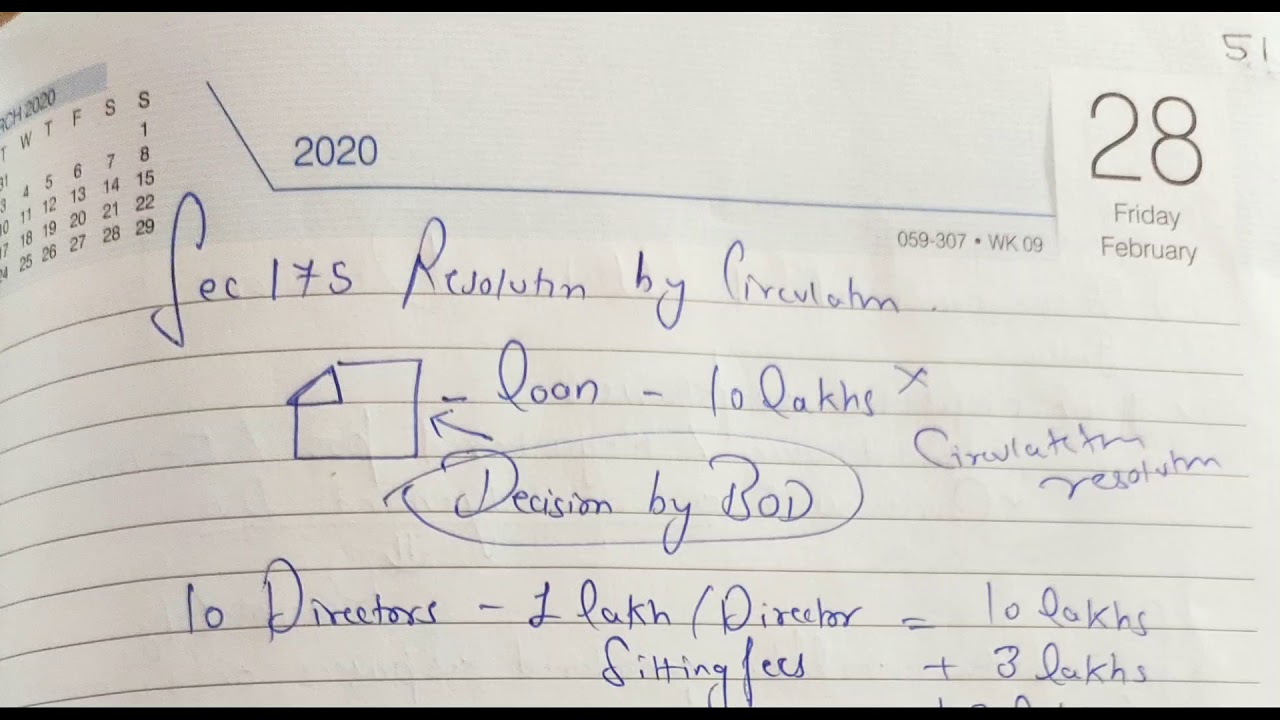 51
RCH 2020
T W T F S S
31 1
3 4 5 6 7 8
10 11 12 13 14 15
17 18 19 20 21 22
24 25 26 27 28 29
2020
28
Friday
February
059-307 • WK 09
Sec 175 Resolutin by Circulatin.
- loan - 10 lakhs x
Circulatetin
resolutin
Decision by BOD
10 Directors - 1 lakh / Director = 10 lakhs
Sitting fees + 3 lakhs